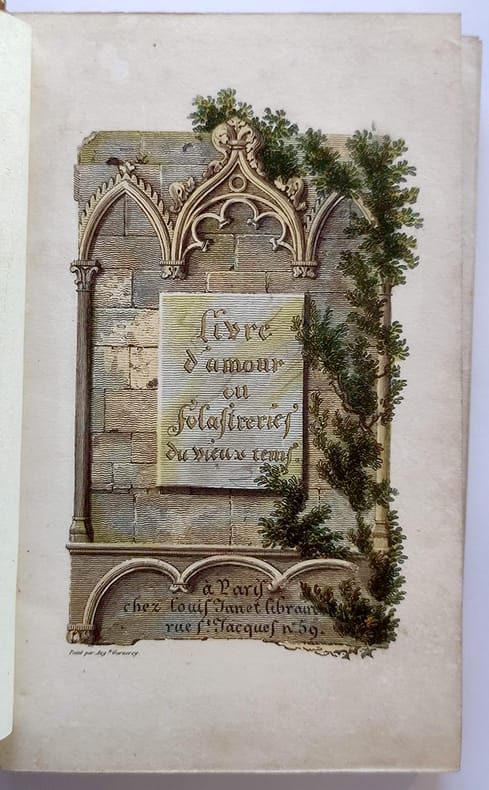 Livre
d'amour
ou
Folastreries
du vieux tems.
à Paris
chez Louis Janet libraire
rue St. Jacques no. 59.
Peint par Augte. Garnerey.